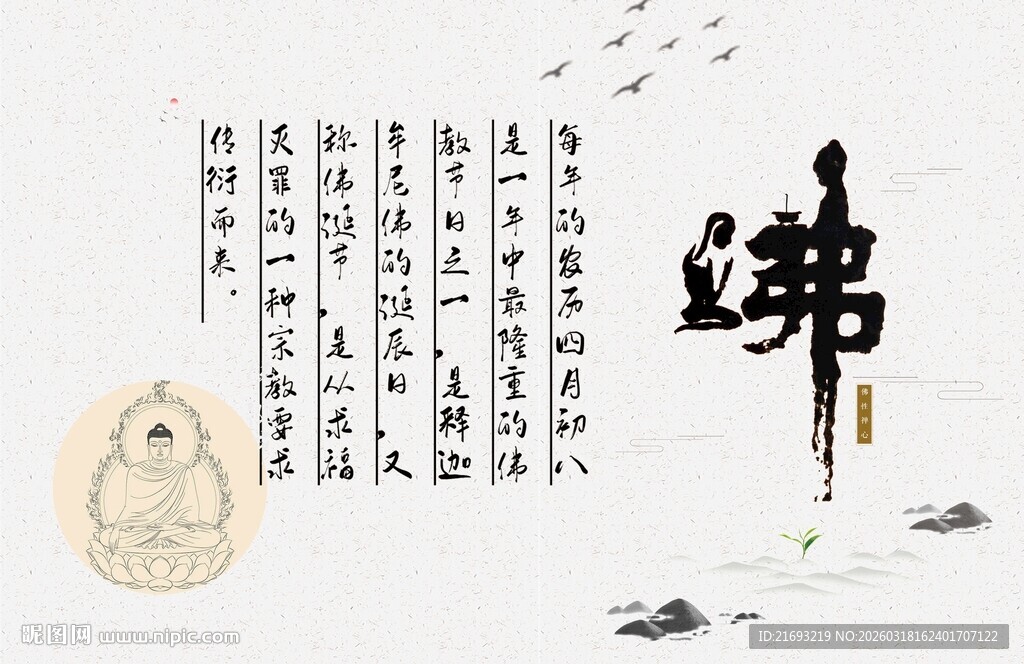 佛
佛性禅心
每年的农历四月初八
是一年中最隆重的佛
教节日之一,是释迦
牟尼佛的诞辰日,又
称佛诞节,是从求福
灭罪的一种宗教要求
传衍而来。
昵图网 www.nipic.com
ID:21693219 NO:20260318162401707122